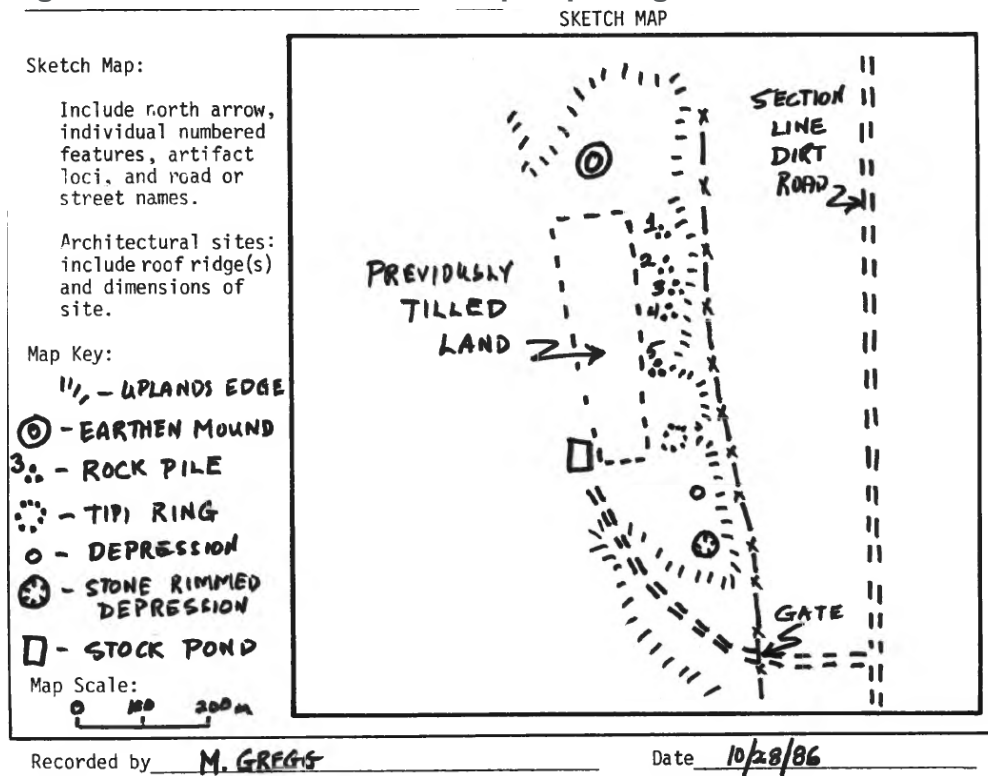 SKETCH MAP
Sketch Map:
Include north arrow,
individual numbered
features, artifact
loci, and road or
street names.
Architectural sites:
include roof ridge(s)
and dimensions of
site.
Map Key:
- UPLANDS EDGE
- EARTHEN MOUND
3 - ROCK PILE
- TIPI RING
- DEPRESSION
- STONE RIMMED
DEPRESSION
- STOCK POND
Map Scale:
0 100 200m
SECTION
LINE
DIRT
ROAD
1
2
3
4
5
PREVIOUSLY
TILLED
LAND
GATE
Recorded by M. GREGG
Date 10/28/86